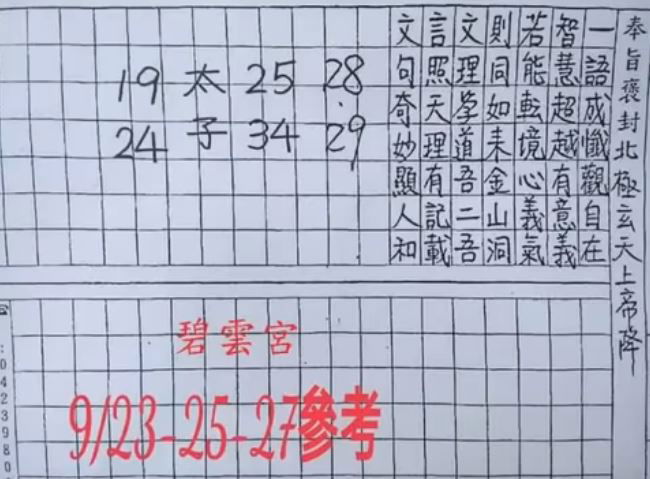 奉旨褒封北極玄天上帝降
一語成懺觀自在
智慧超越有意義
若能転境心義氣
則同如来金山洞
文理学道吾二吾
言照天理有記載
文句奇妙顯人和
28 29
25 34
太子
19 24
碧雲宮
9/23-25-27參考
:0423980